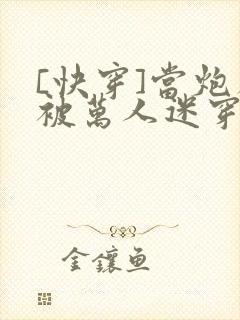 [快穿]當炮
被萬人迷穿
金鑲魚